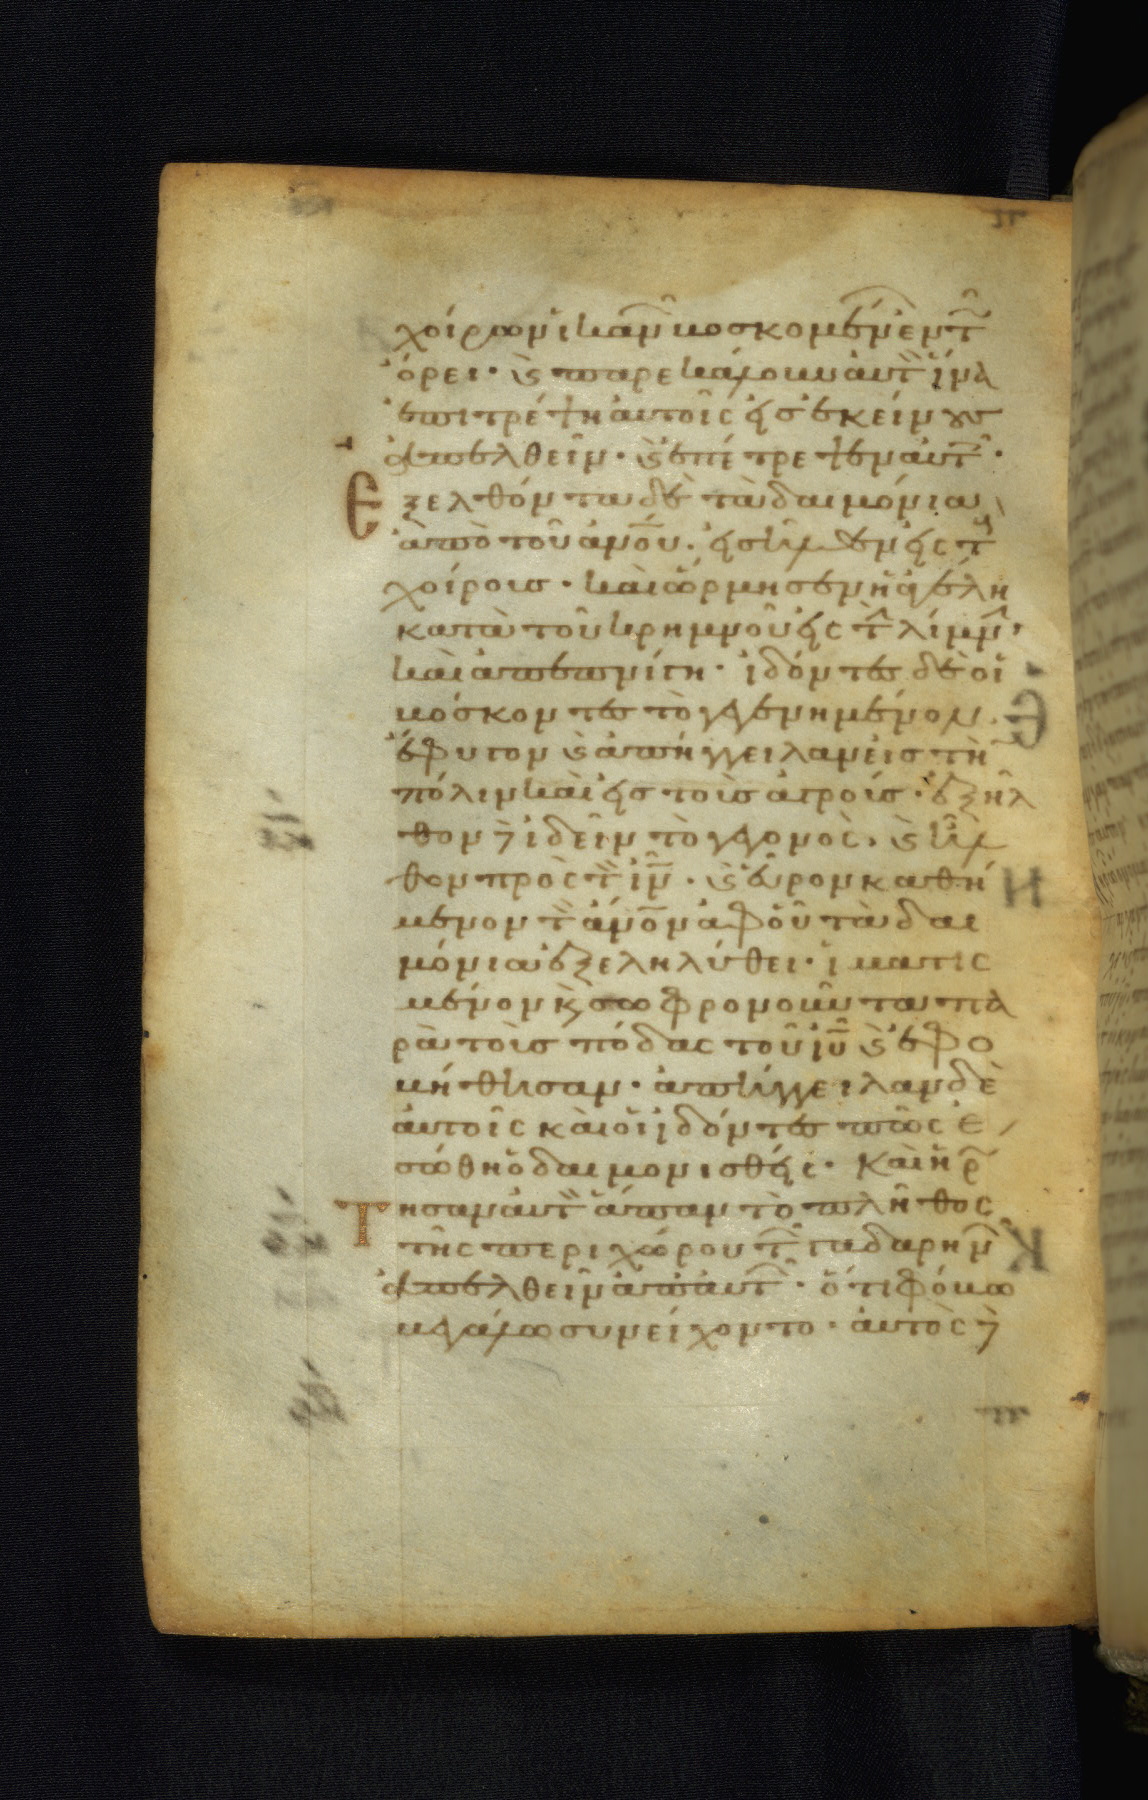 χοίρων ἱκανῶν βοσκομένων ἐν τῷ
ὄρει· καὶ παρεκάλουν αὐτὸν ἵνα
ἐπιτρέψη αὐτοῖς εἰς ἐκείνους
ἀπελθεῖν· καὶ ἐπέτρεψεν αὐτοῖς·
Ἐξελθόντα δὲ τὰ δαιμόνια
ἀπὸ τοῦ ἀνου· εἰσῆλθεν εἰς τοὺς
χοίρους· καὶ ὥρμησεν ἡ ἀγέλη
κατὰ τοῦ κρημνοῦ εἰς τὴν λίμνην·
καὶ ἀπεπνίγη· ἰδόντες δὲ οἱ
βόσκοντες τὸ γεγενημένον·
ἔφυγον καὶ ἀπήγγειλαν εἰς τὴν
πόλιν καὶ εἰς τοὺς ἀγρούς· ἐξῆλ
θον δὲ ἰδεῖν τὸ γεγονὸς· καὶ ἦλ
θον πρὸς τὸν ιν· καὶ εὗρον καθή
μενον τὸν ανον ἀφ οὗ τὰ δαι
μόνια ἐξεληλύθει· ἱματισ
μένον καὶ σωφρονοῦντα πα
ρὰ τοὺς πόδας τοῦ ιυ καὶ ἐφο
βήθησαν· ἀπήγγειλαν δὲ
αὐτοῖς καὶ οἱ ἰδόντες πῶς ἐ
σώθη ὁ δαιμονισθείς· Καὶ ἠρώ
τησαν αὐτὸν ἅπαν τὸ πλῆθος
τῆς περιχώρου τῶν γαδαρηνῶν
ἀπελθεῖν ἀπ αὐτῶν· ὅτι φόβω
μεγάλω συνείχοντο· αὐτὸς δὲ